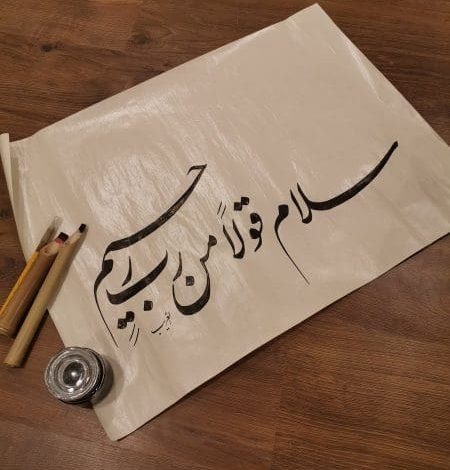 سلام قولاً من رب رحیم